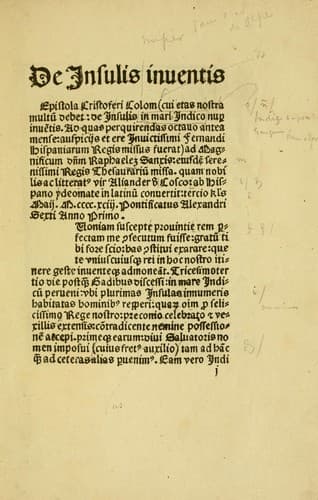 De Insulis inuentis
Epistola Cristoferi Colom (cui etas nostra
multū debet: de Insulis in mari Indico nup
inuētis. Ad quas perquirendas octauo antea
mense: auspicijs et ere Inuictissimi Fernandi
Hispaniarum Regis missus fuerat) ad Mag-
nificum dñm Raphaelez Sanxis: eiusdē sere-
nissimi Regis Thesaurariū missa. quam nobi
lis ac litterat⁹ vir Aliander d̄ Cosco: ab His
pano ydeomate in latinū conuertit: tercio kl̄s
Maij. M.cccc.xciij. Pontificatus Alexandri
Sexti Anno Primo.
Quoniam suscepte prouintie rem p
fectam me ꝯsecutum fuisse: gratū ti
bi fore scio: has ꝯstitui exarare: que
te vniuscuiusqꝫ rei in hoc nostro iti
nere geste inuenteqꝫ admoneāt. Tricesimoter
tio die postqꝫ Gadibus discessi: in mare Indi
cū perueni: vbi plurimas Insulas innumeris
habitatas hominib⁹ reperi: quaꝝ oīm p feli
cissimo Rege nostro: preconio celebrato ⁊ ve-
xillis extensis: cōtradicente nemine possessio
nē accepi. primeqꝫ earum: diui Saluatoris no
men imposui (cuius fret⁹ auxilio) tam ad hāc
qꝫ ad ceteras alias puenim⁹. Eam vero Indi
j